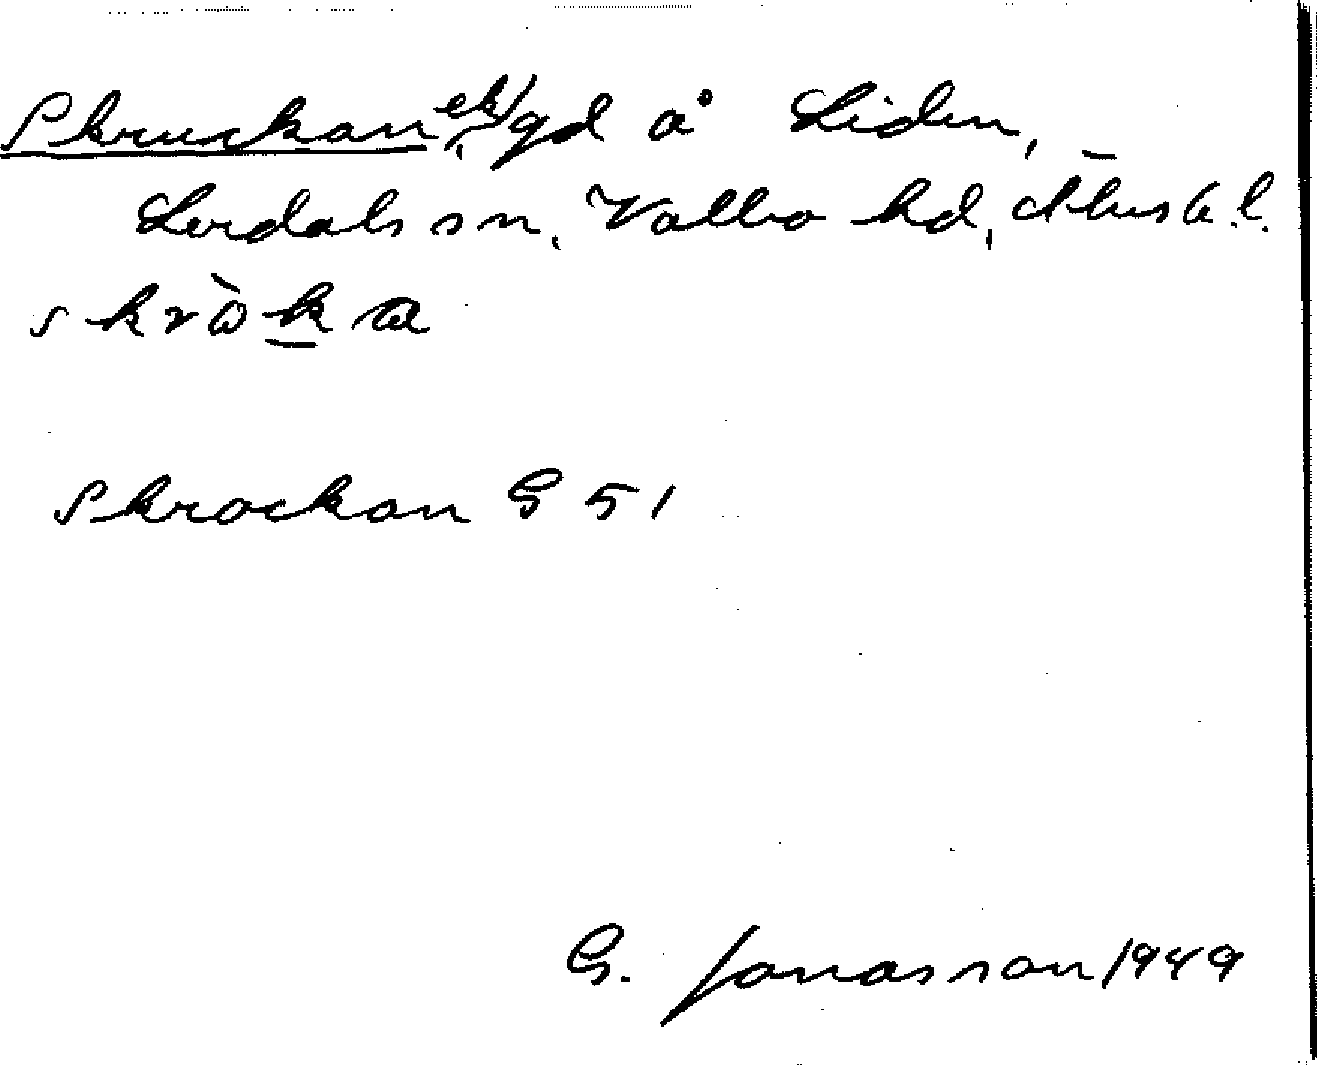 Skruckan, ek) gd å Liden,
Lerdals sn, Valbo hd, Älvsb. l.
skrὼka
Skrockan G 51
G. Jonasson 1949